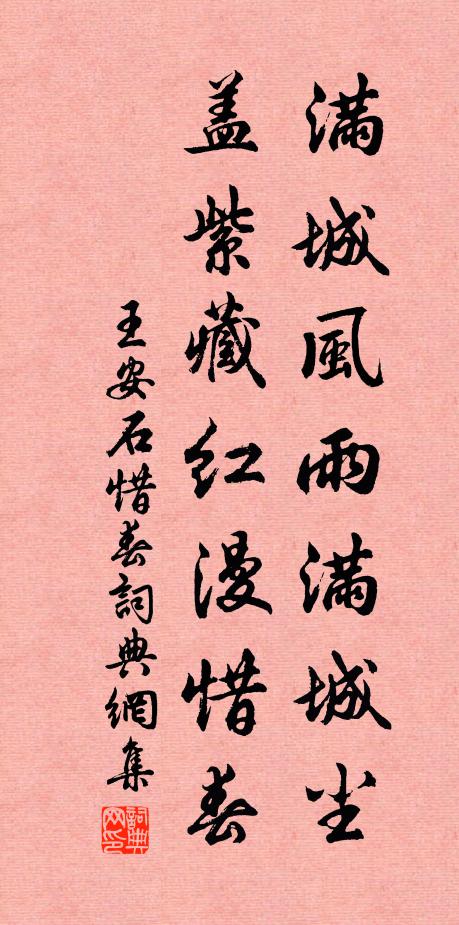 滿城風雨滿城尘
盖紫藏红漫惜春
王安石惜春詞典網集
詞典
网印